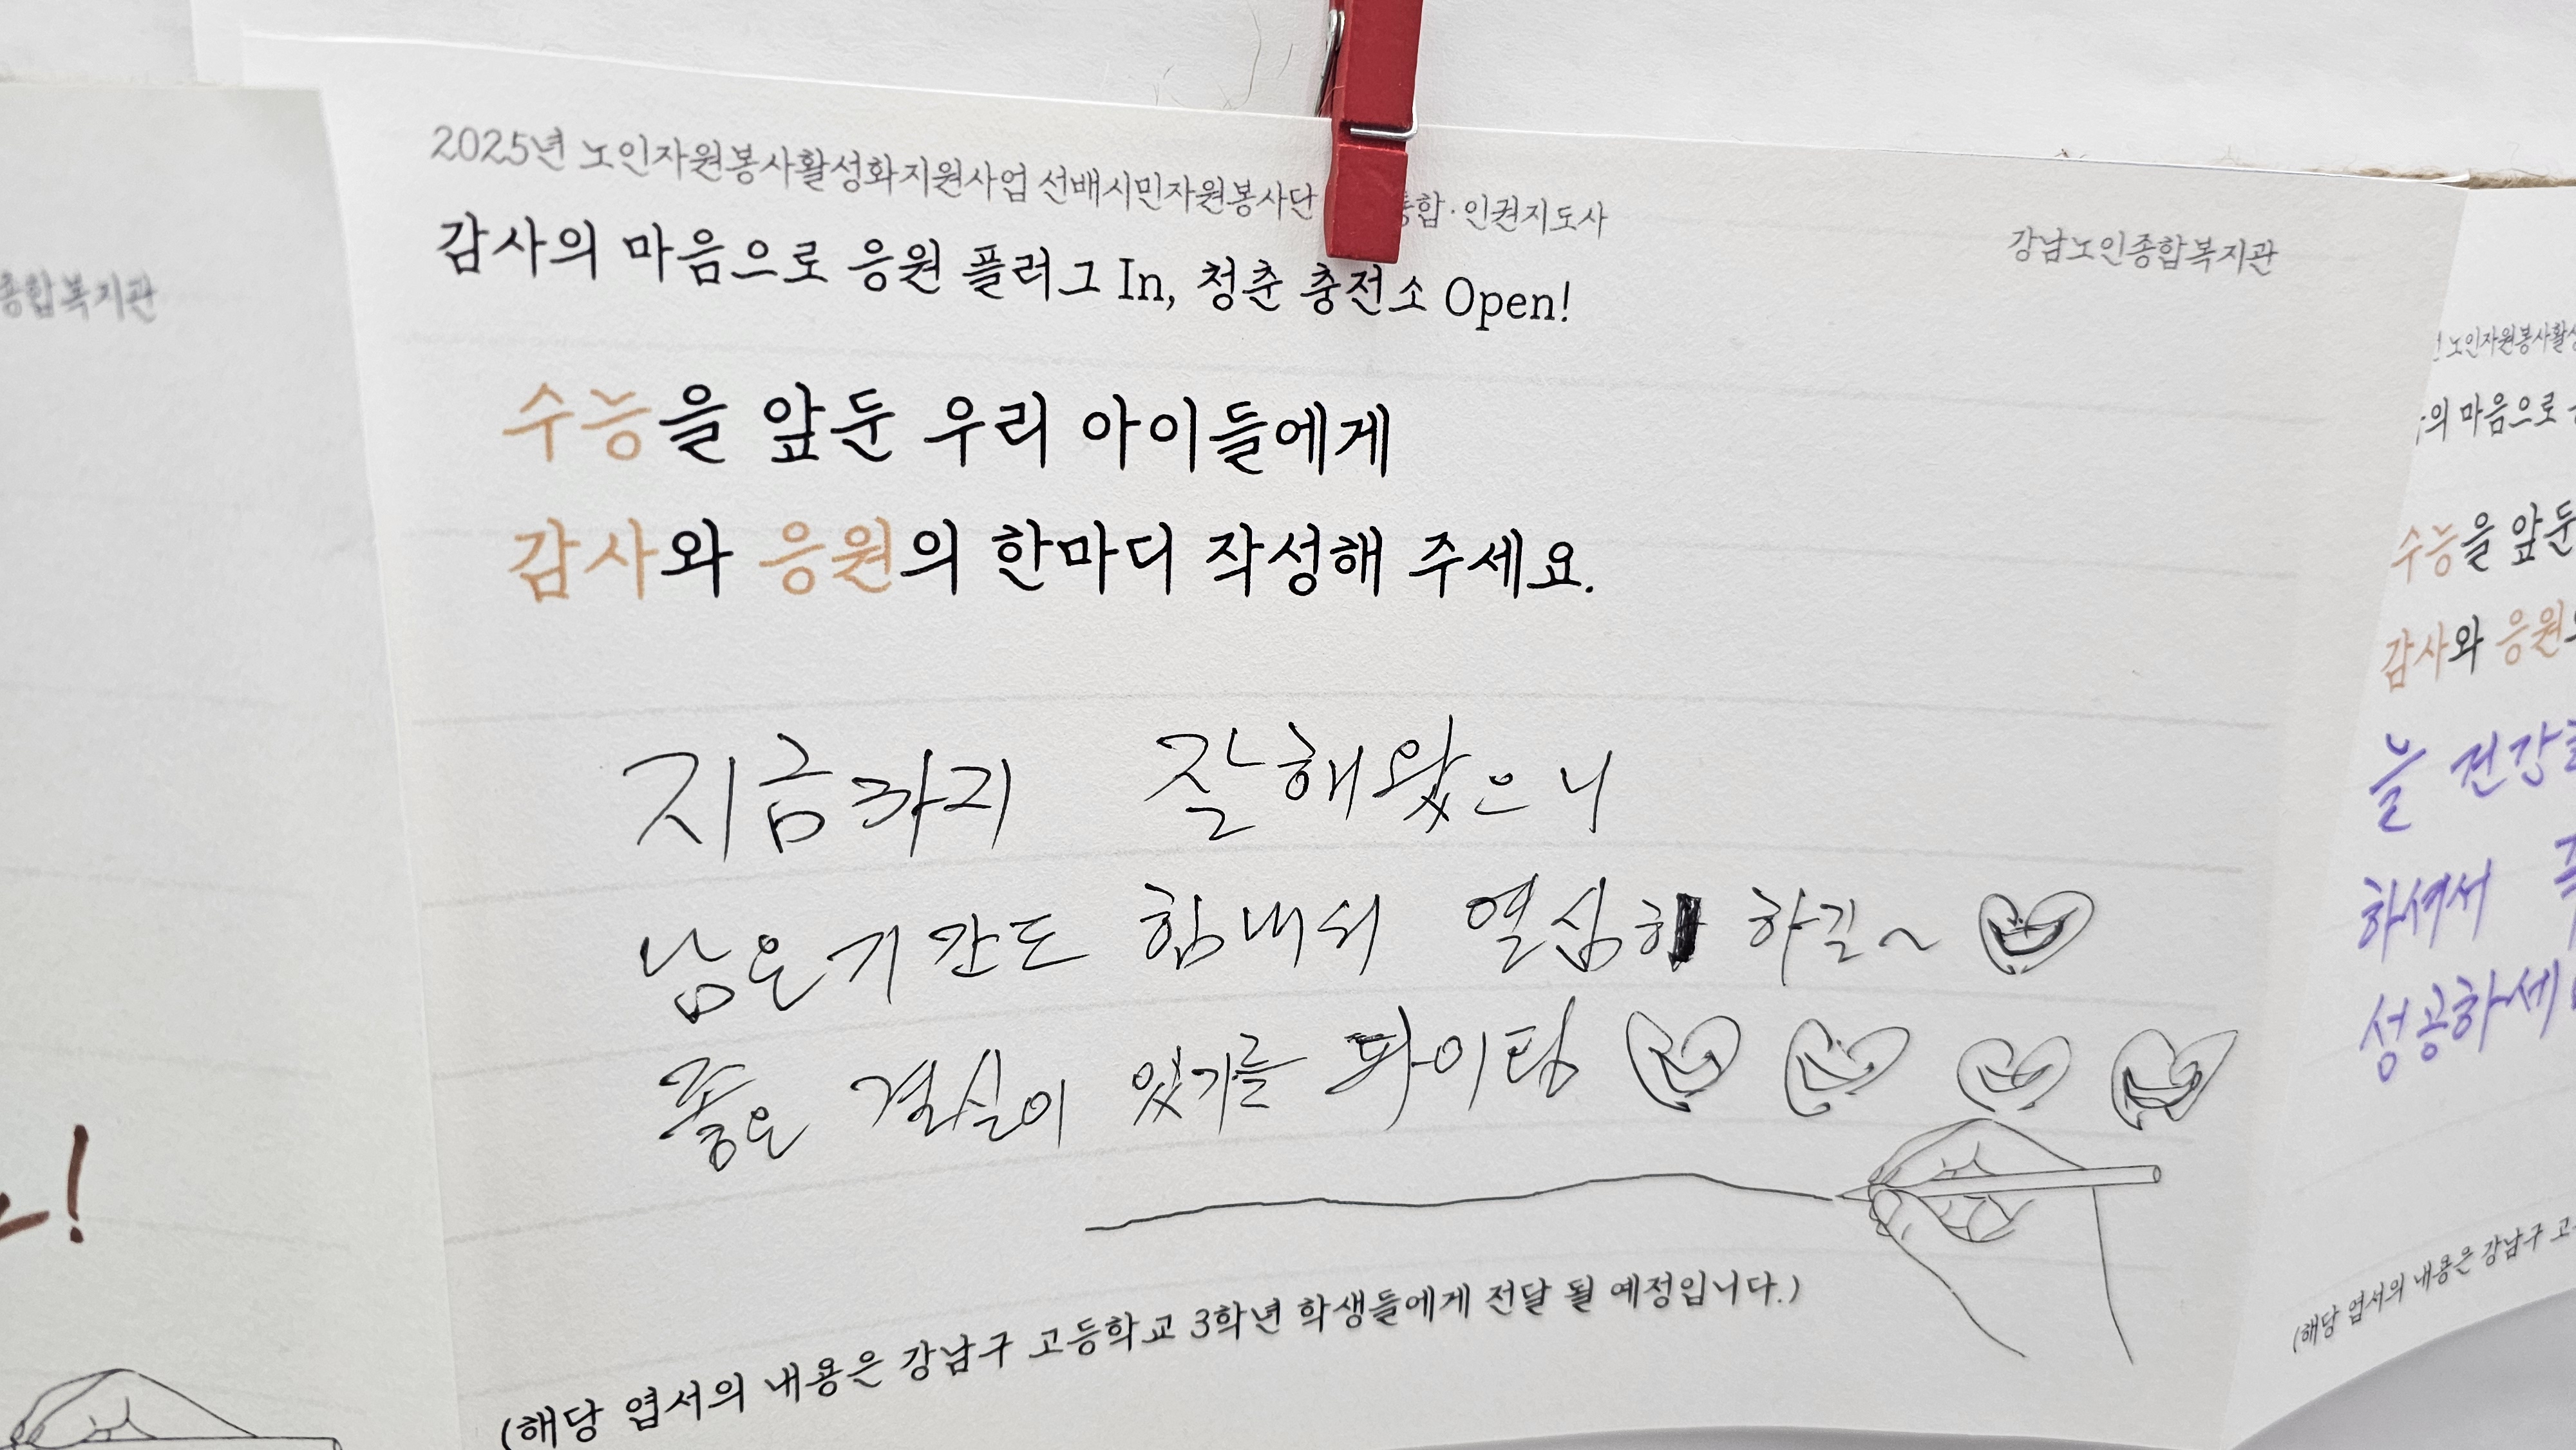 2025년 노인자원봉사활성화지원사업 선배시민자원봉사단 통합·인권지도사
강남노인종합복지관
감사의 마음으로 응원 플러그 In, 청춘 충전소 Open!
수능을 앞둔 우리 아이들에게
감사와 응원의 한마디 작성해 주세요.
지금까지 잘해왔으니
남은기간도 힘내서 열심히 하길~
좋은 결실이 있기를 화이팅
(해당 엽서의 내용은 강남구 고등학교 3학년 학생들에게 전달 될 예정입니다.)
종합복지관
노인자원봉사활
의 마음으로
수능을 앞둔
감사와 응원
늘 건강
하셔서
성공하세
(해당 엽서의 내용은 강남구 고